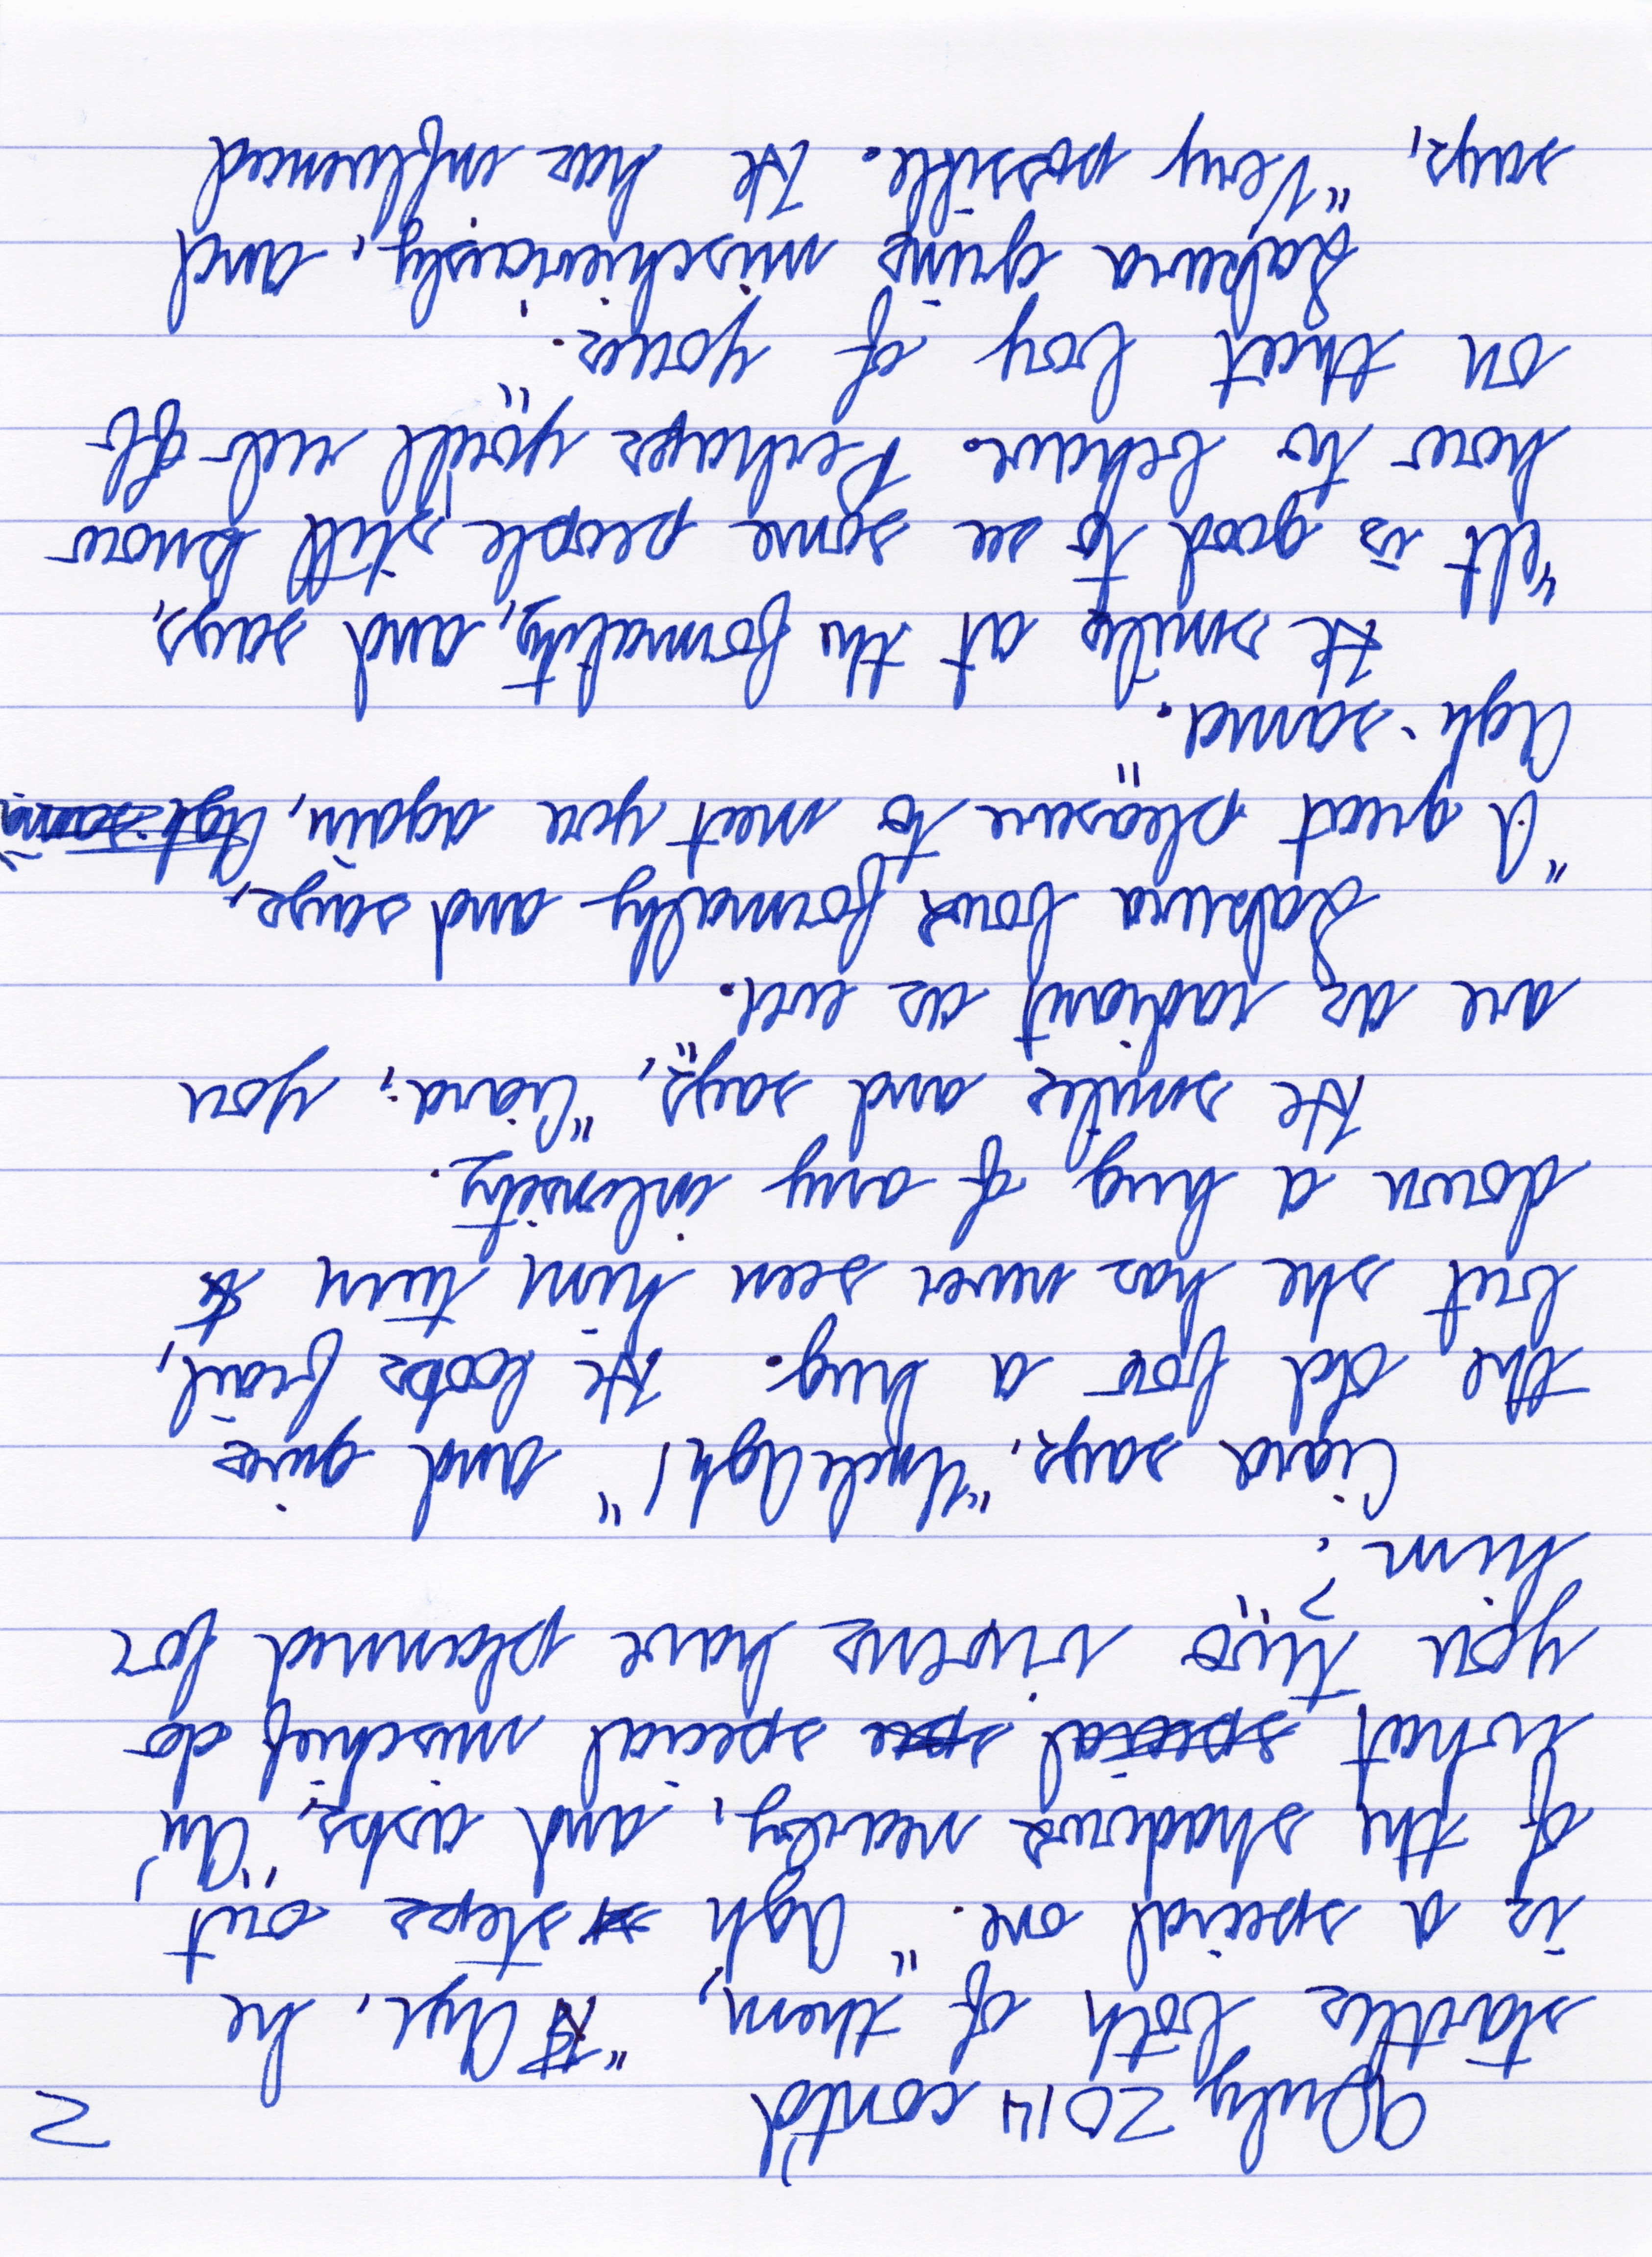 9 July 2014 cont'd 2
startles both of them, "Aye, he
is a special one." Agh steps out
of the shadows nearby, and asks, "An'
what special spe special mischief do
you two vixens have planned for
him?"
Ciara says, "Uncle Agh!" and gives
the old fox a hug. He looks frail,
but she has never seen him turn
down a hug of any intensity.
He smiles and says, "Ciara, you
are as radiant as ever."
Sakura bows formally and says,
"A great pleasure to meet you again, Agh-sama
Agh-sama."
He smiles at the formality, and says,
"It is good to see some people still know
how to behave. Perhaps you'll rub off
on that boy of yours."
Sakura grins mischieviously, and
says, "Very possible. He has influenced